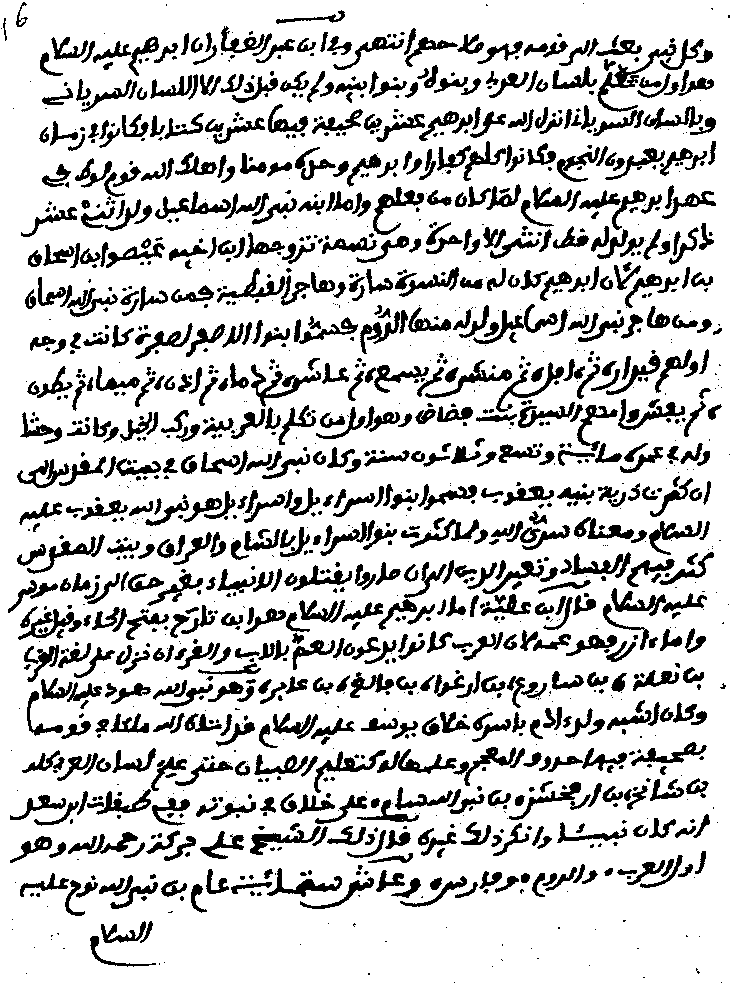 16
وكل فيهم بعث الى قومه فهو فلا حصر انتهى وفي ابن عبد الغفار ان ابرهيم عليه السلام
هو اول من تكلم بلسان العرب وبنوه وبنوا بنيه ولم يكن قبل ذلك الا اللسان السرياني
وباللسان السرياني انزل الله على ابرهيم عشرين صحيفة فيها عشرين كتابا وكانوا في زمان
ابرهيم يعبدون النجوم وكانوا كلهم كفارا وابرهيم وحده مومنا واهلك الله قوم لوط في
عهد ابرهيم عليه السلام لما كان من فعلهم واما ابنه نبي الله اسماعيل ولد اثنى عشر
ذكرا ولم يولد له قط انثى الا واحدة وهي نسمة تزوجها ابن اخيه عيصو ابن اسحاق
بن ابرهيم لان ابرهيم كان له من النسوة سارة وهاجر القبطية فمن سارة نبي الله اسحاق
ومن هاجر نبي الله اسماعيل وولد له منها الروم فسموا بنوا الاصفر لصفرة كانت في وجه
اولهم قيدار ثم ادبل ثم منشى ثم يسمع ثم عاشو ثم دماء ثم اذر ثم ميها ثم يطور
ثم يعشر وامهم السيدة بنت مضاض وهو اول من تكلم بالعربية وركب الخيل وكانت وحشا
وله في عمره مائة وتسع وثلاثون سنة وكان نبي الله اسحاق في بيت المقدس الى
ان كثرت ذرية بنيه يعقوب فسموا بنوا اسراءيل واسراءيل هو نبي الله يعقوب عليه
السلام ومعناه سرى الله ولما كثرت بنوا اسراءيل بالشام والعراق وبيت المقدس
كثر فيهم الفساد وتغير الدين الى ان صاروا يقتلون الانبياء بغير حق الى زمان موسى
عليه السلام قال ابن عطية اما ابرهيم عليه السلام هو ابن تارح بفتح الحاء وقيل غيره
واما ءازر فهو عمه لان العرب كانوا يدعون العم بالاب والقرءان نزل على لغة العرب
بن ساروغ بن ارغواء بن فالغ بن عابر وهو نبي الله هود عليه السلام
وكان اشبه ولد ءادم باسره خلاق يوسف عليه السلام
بصحيفة فيها حروف المعجم وعلمها له كتعليم الصبيان حتى علم لسان العرب كله
بن شالخ بن ارفخشد بن نبي الله سام على خلاف في نبوته ففي طبقات ابن سعد
انه كان نبيئا وانكر ذلك غيره قال ذلك الشيخ على بركة رحمه الله وهو
ابو العرب والروم وفارس وعاش ستمائة عام بن نبي الله نوح عليه
السلام